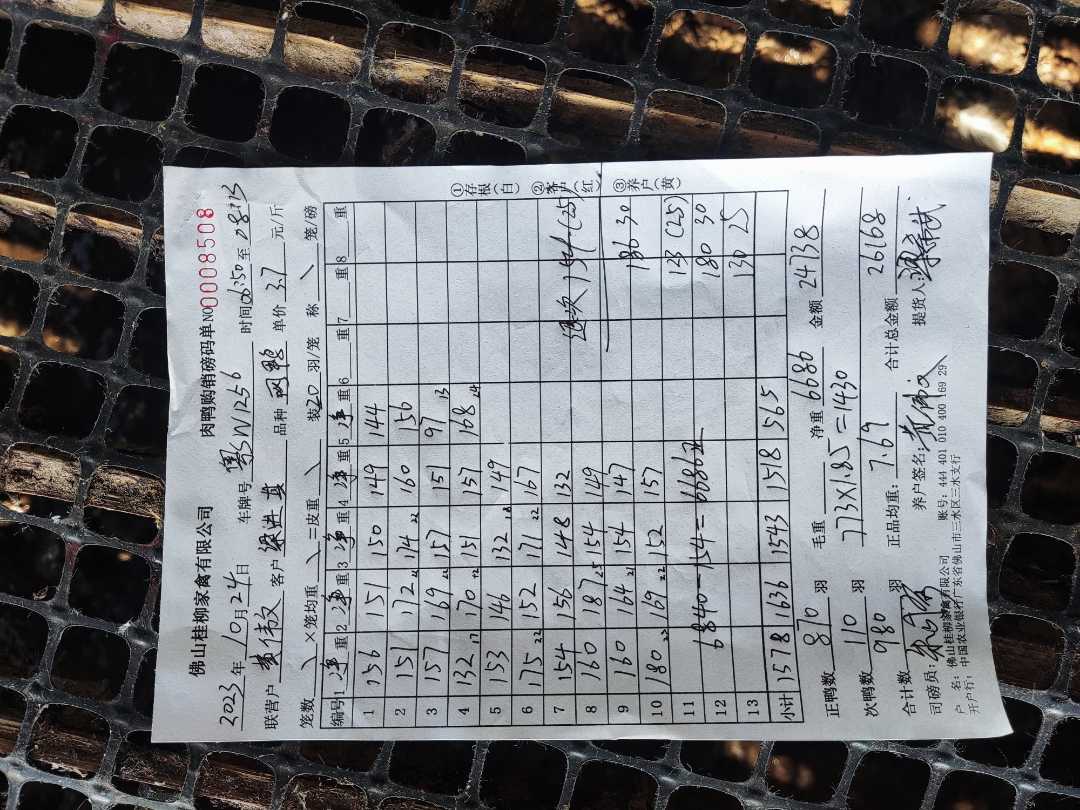 佛山桂柳家禽有限公司 肉鸭购销磅码单 NO0008508
2023年10月24日 车牌号 粤W1256 时间 06:50 至 08:13
联营户 客户 梁进真 品种 网鸭 单价 3.7 元/斤
笼数 \ ×笼均重 \ =皮重 \ 装20羽/笼 称 \ 笼磅
编号 1净重 2净重 3净重 4净重 5净重 6 重 7 重 8 重
1 156 151 150 149 144
2 151 172 22 174 22 160 156
3 157 169 22 157 151 97 13
4 132 17 170 22 151 157 168 24
5 153 146 132 18 149
6 175 22 152 171 22 167
7 154 156 148 132 154 (25)
8 160 187 25 154 149
9 160 164 21 154 147 136 30
10 180 22 169 22 152 157 123 (25)
11 6840-154=6686斤 180 30
12 130 25
13
小计 1578 1636 1543 1518 565
①存根(白) ②客户(红) ③养户(黄)
正鸭数 870 羽 毛重 净重 6686 金额 24738
次鸭数 110 羽 773×1.85=1430
合计数 980 羽 正品均重: 7.69 合计总金额 26168
司磅员: 养户签名: 提货人:
户 名: 佛山桂柳家禽有限公司 账号: 444 401 010 400 169 29
开户行: 中国农业银行广东省佛山市三水区三水支行